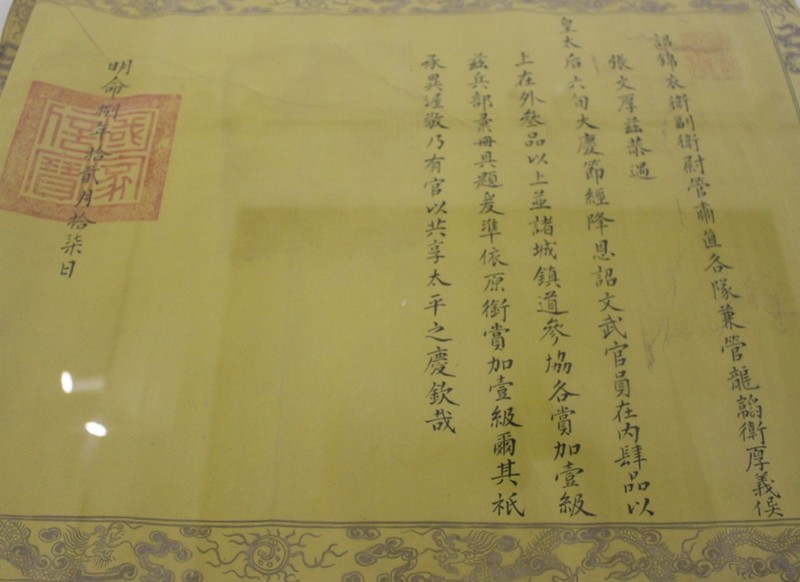 詔錦衣衛副衛尉管肅直各隊兼管龍韜衛厚義侯
張文厚茲恭遇
皇太后六旬大慶節經降恩詔文武官員在內肆品以
上在外叄品以上並諸城鎮道參協各賞加壹級
茲兵部彙冊具題爰準依原銜賞加壹級爾其祇
承異渥敬乃有官以共享太平之慶欽哉
明命捌年拾貳月拾柒日
國家信寶